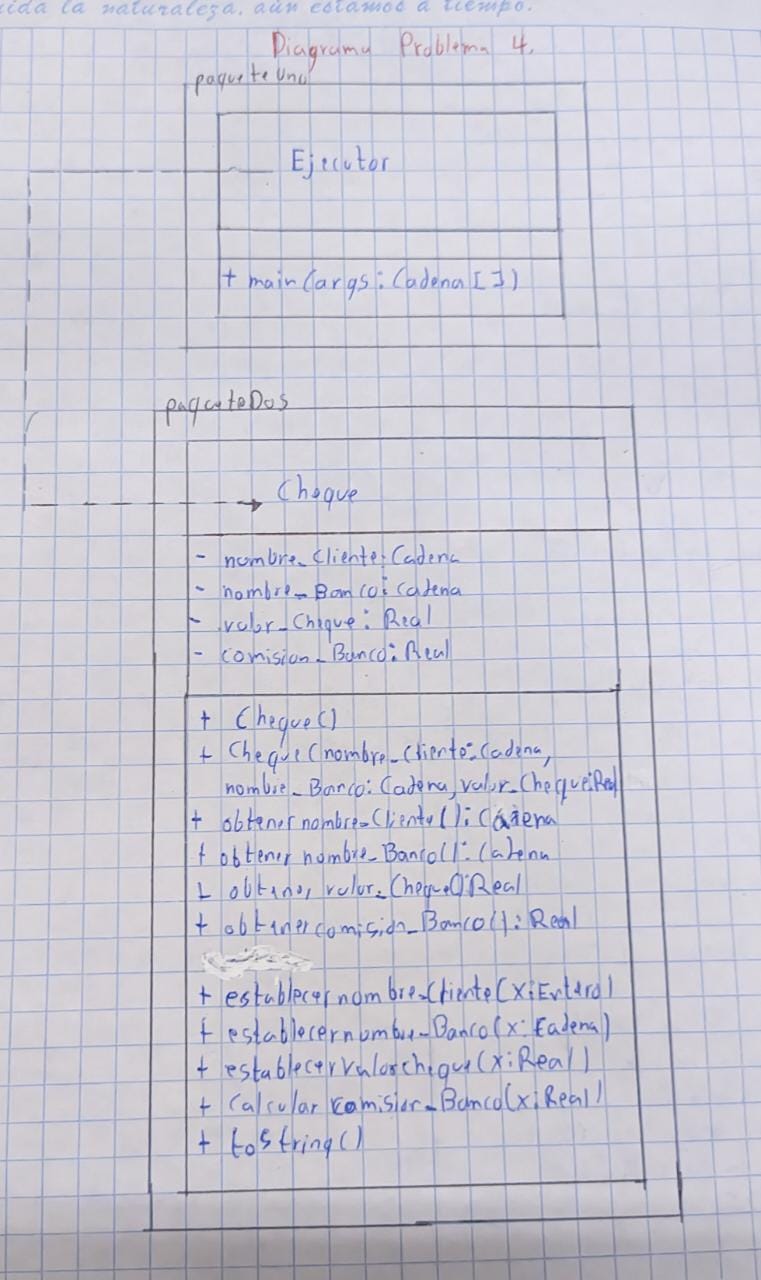 ida la naturaleza, aún estamos a tiempo.
Diagrama Problema 4.
paqueteUno
Ejecutor
+ main(args: Cadena[])
paqueteDos
Cheque
- nombre_Cliente: Cadena
- nombre_Banco: Cadena
- valor_Cheque: Real
- comision_Banco: Real
+ Cheque()
+ Cheque(nombre_Cliente: Cadena,
nombre_Banco: Cadena, valor_Cheque: Real
+ obtener nombre_Cliente(): Cadena
+ obtener nombre_Banco(): Cadena
+ obtener valor_Cheque(): Real
+ obtener comision_Banco(): Real
+ establecer nombre_Cliente(x: Entero)
+ establecer nombre_Banco(x: Cadena)
+ establecer valorcheque(x: Real)
+ Calcular comision_Banco(x: Real)
+ toString()